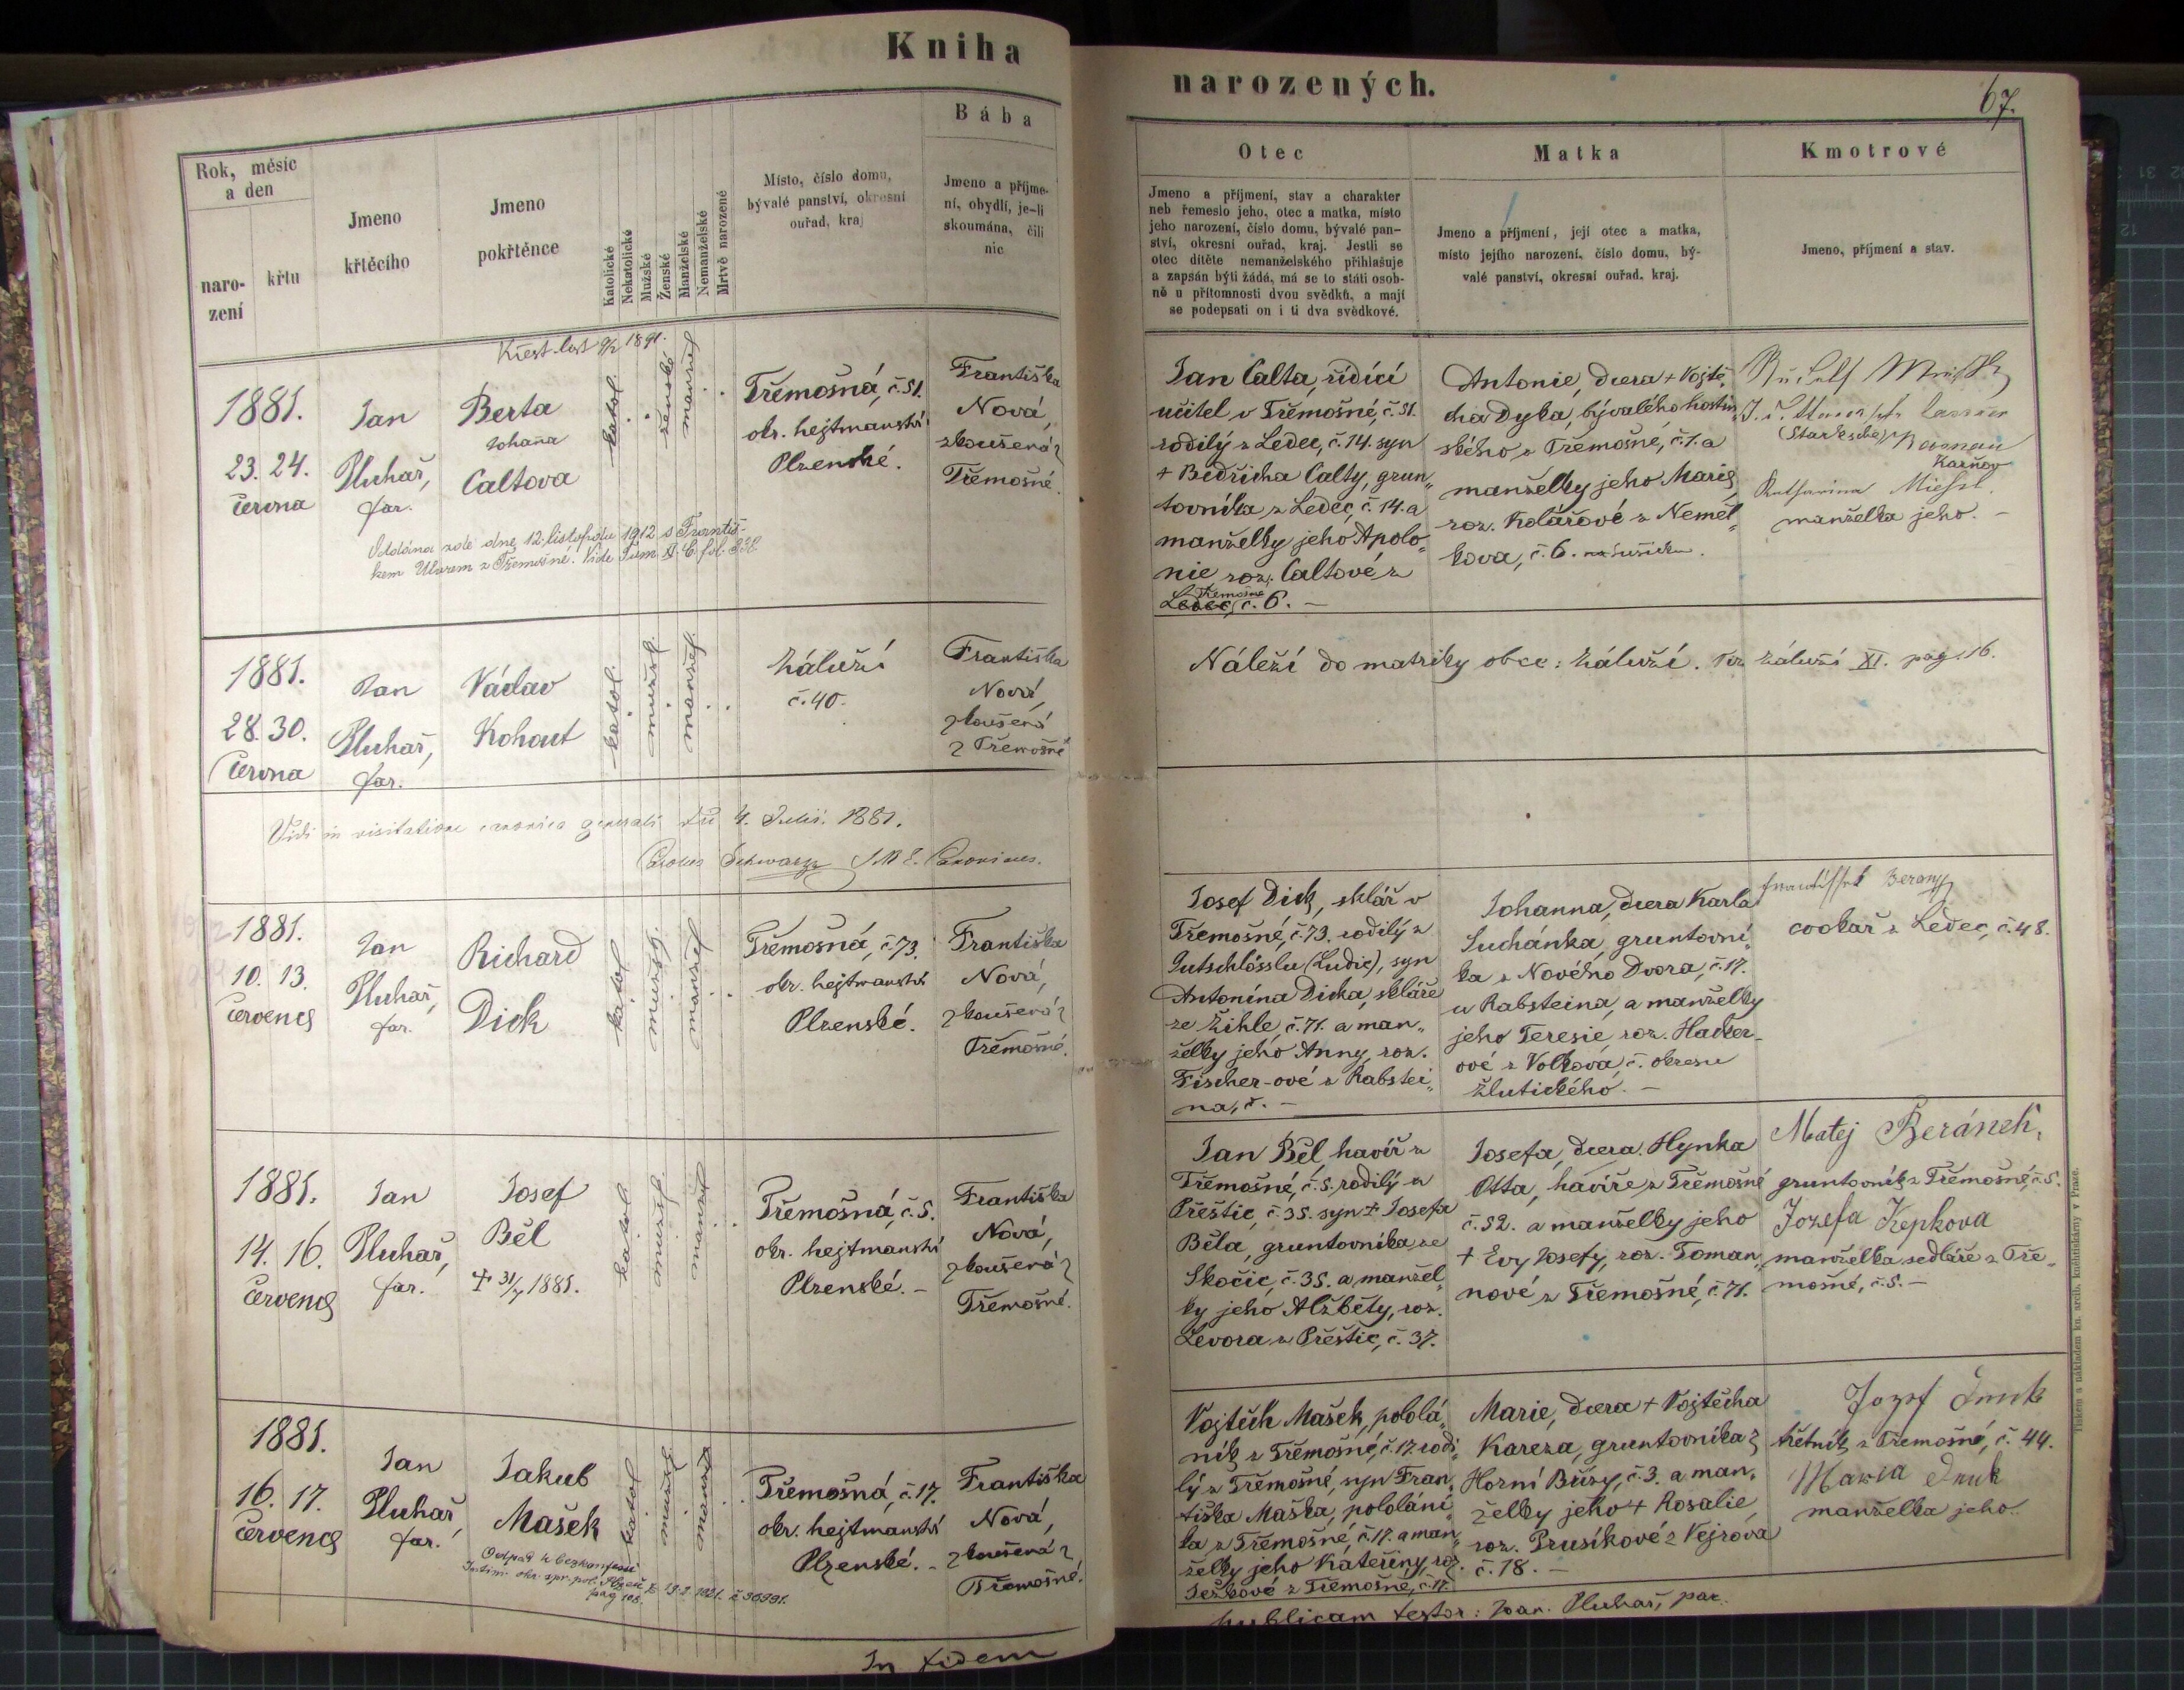 Kniha
Bába
Rok, měsíc
a den
naro-
zení
křtu
Jmeno
křtěcího
Jmeno
pokřtěnce
Katolické
Nekatolické
Mužské
Ženské
Manželské
Nemanželské
Mrtvě narozené
Místo, číslo domu,
bývalé panství, okresní
ouřad, kraj
Jmeno a příjme-
ní, obydlí, je-li
skoumána, čili
nic
Křest. list 9/2 1891.
1881.
23. 24.
června
Jan
Pluhař,
far.
Berta
Johana
Caltova
katol.
ženské
manžel
Třemošná, č. 51.
okr. hejtmanství
Plzenské.
Františka
Nová,
zkoušená z
Třemošné.
Oddána zde dne 12. listopadu 1912 s Františ-
kem
1881.
28. 30.
června
Jan
Pluhař,
far.
Václav
Kohout
katol.
mužsk.
manžel.
Záluží
č. 40.
Františka
Nová,
zkoušená
z Třemošné
Vidi in visitatione canonica generali die 4. Julii. 1881.
Carolus Schwarz
1881.
10. 13.
července
Jan
Pluhař,
far.
Richard
Dick
katol
mužsk.
manžel
Třemošná, č. 73.
okr. hejtmanství
Plzenské.
Františka
Nová,
zkoušená z
Třemošné.
1881.
14. 16.
července
Jan
Pluhař,
far.
Josef
Běl
+ 31/7 1881.
katol
mužsk.
manžel
Třemošná, č. 5.
okr. hejtmanství
Plzenské. -
Františka
Nová,
zkoušená z
Třemošné.
1881.
16. 17.
července
Jan
Pluhař,
far.
Jakub
Mašek
katol
mužsk.
manžel
Třemošná, č. 17.
okr. hejtmanství
Plzenské. -
Františka
Nová,
zkoušená z
Třemošné.
In fidem
narozených.
67.
Otec
Matka
Kmotrové
Jmeno a příjmení, stav a charakter
neb řemeslo jeho, otec a matka, místo
jeho narození, číslo domu, bývalé pan-
ství, okresní ouřad, kraj. Jestli se
otec dítěte nemanželského přihlašuje
a zapsán býti žádá, má se to státi osob-
ně u přítomnosti dvou svědků, a mají
se podepsati on i ti dva svědkové.
Jmeno a příjmení, její otec a matka,
místo jejího narození, číslo domu, bý-
valé panství, okresní ouřad, kraj.
Jmeno, příjmení a stav.
Jan Calta, řídící
učitel v Třemošné, č. 51.
rodilý z Ledec, č. 14. syn
+ Bedřicha Calty, grun„
tovníka z Ledec, č. 14. a
manželky jeho Apolo„
nie roz. Caltové z
Třemošné
Ledec, č. 6. -
Antonie, dcera + Vojtě„
cha Dyka, bývalého hostin„
ského z Třemošné, č. 1. a
manželky jeho Marie,
roz. Kolářové z Neměl„
kova, č. 6.
manželka jeho. -
Náleží do matriky obce: Záluží. Tom. Záluží XI. pag. 16.
Josef Dick, sklář v
Třemošné, č. 73. rodilý z
Gutschlösslu (Ludic), syn
Antonína Dicka, skláře
ze Žihle, č. 71. a man„
želky jeho Anny, roz.
Fischer-ové z Rabstei„
na, č. -
Johanna, dcera Karla
Suchánka, gruntovní„
ka z Nového Dvora, č. 17.
u Rabsteina, a manželky
jeho Teresie, roz. Hacker-
ové z Volkova, č. okresu
Žlutického. -
cvokař z Ledec, č. 48.
Jan Běl, havíř z
Třemošné, č. 5. rodilý z
Přeštic, č. 35. syn + Josefa
Běla, gruntovníka ze
Skočic, č. 35. a manžel„
ky jeho Alžběty, roz.
Levora z Přeštic, č. 37.
Josefa, dcera Hynka
Otta, havíře z Třemošné
č. 52. a manželky jeho
+ Evy Josefy, roz. Toman„
nové z Třemošné, č. 71.
Matej Beránek,
gruntovník z Třemošné, č. 5.
Jozefa Kepkova
manželka sedláře z Tře„
mošné, č. 5. -
Vojtěch Mašek, pololá„
ník z Třemošné, č. 17. rodi„
lý z Třemošné, syn Fran„
tiška Maška, pololání„
ka z Třemošné, č. 17. a man„
želky jeho Kateřiny, roz.
Ješkové z Třemošné, č. 17.
Marie, dcera + Vojtěcha
Kareza, gruntovníka z
Horní Břízy, č. 3. a man„
želky jeho + Rosalie,
roz. Prusíkové z Vejrova
č. 18. -
Jozef
z Třemošné, č. 44.
Maria
manželka jeho.
publicam testor: Joan. Pluhař, par.
Tiskem a nákladem kn. arcib. knihtiskárny v Praze.